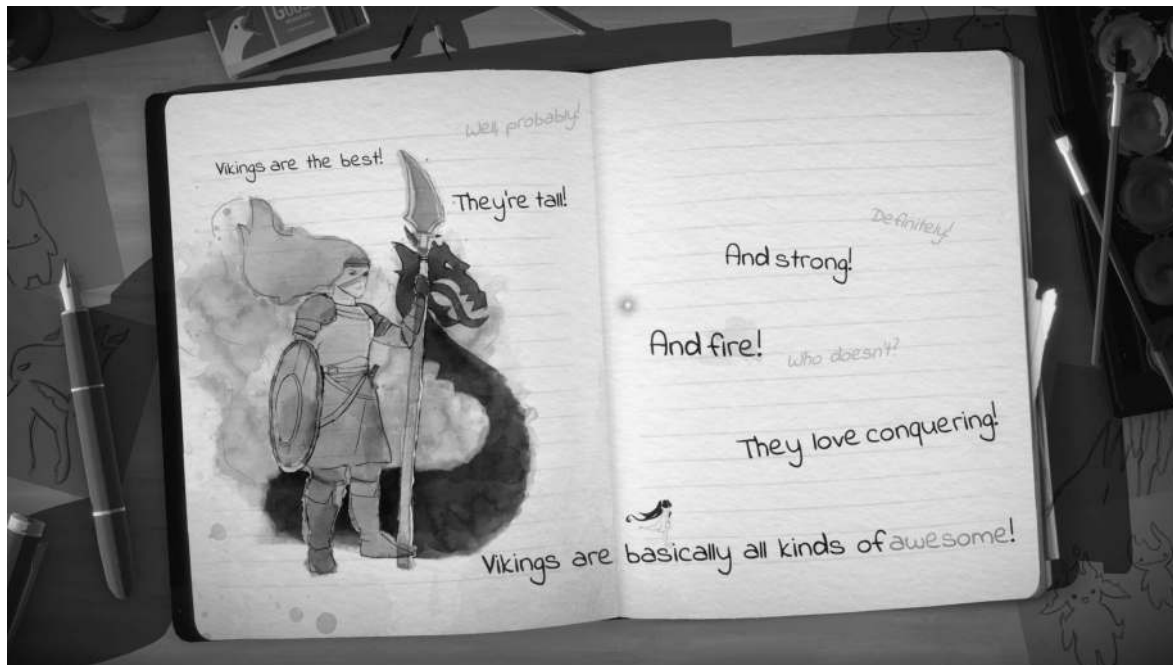 Well, probably!
Vikings are the best!
They're tall!
Definitely!
And strong!
And fire!
Who doesn't?
They love conquering!
Vikings are basically all kinds of awesome!